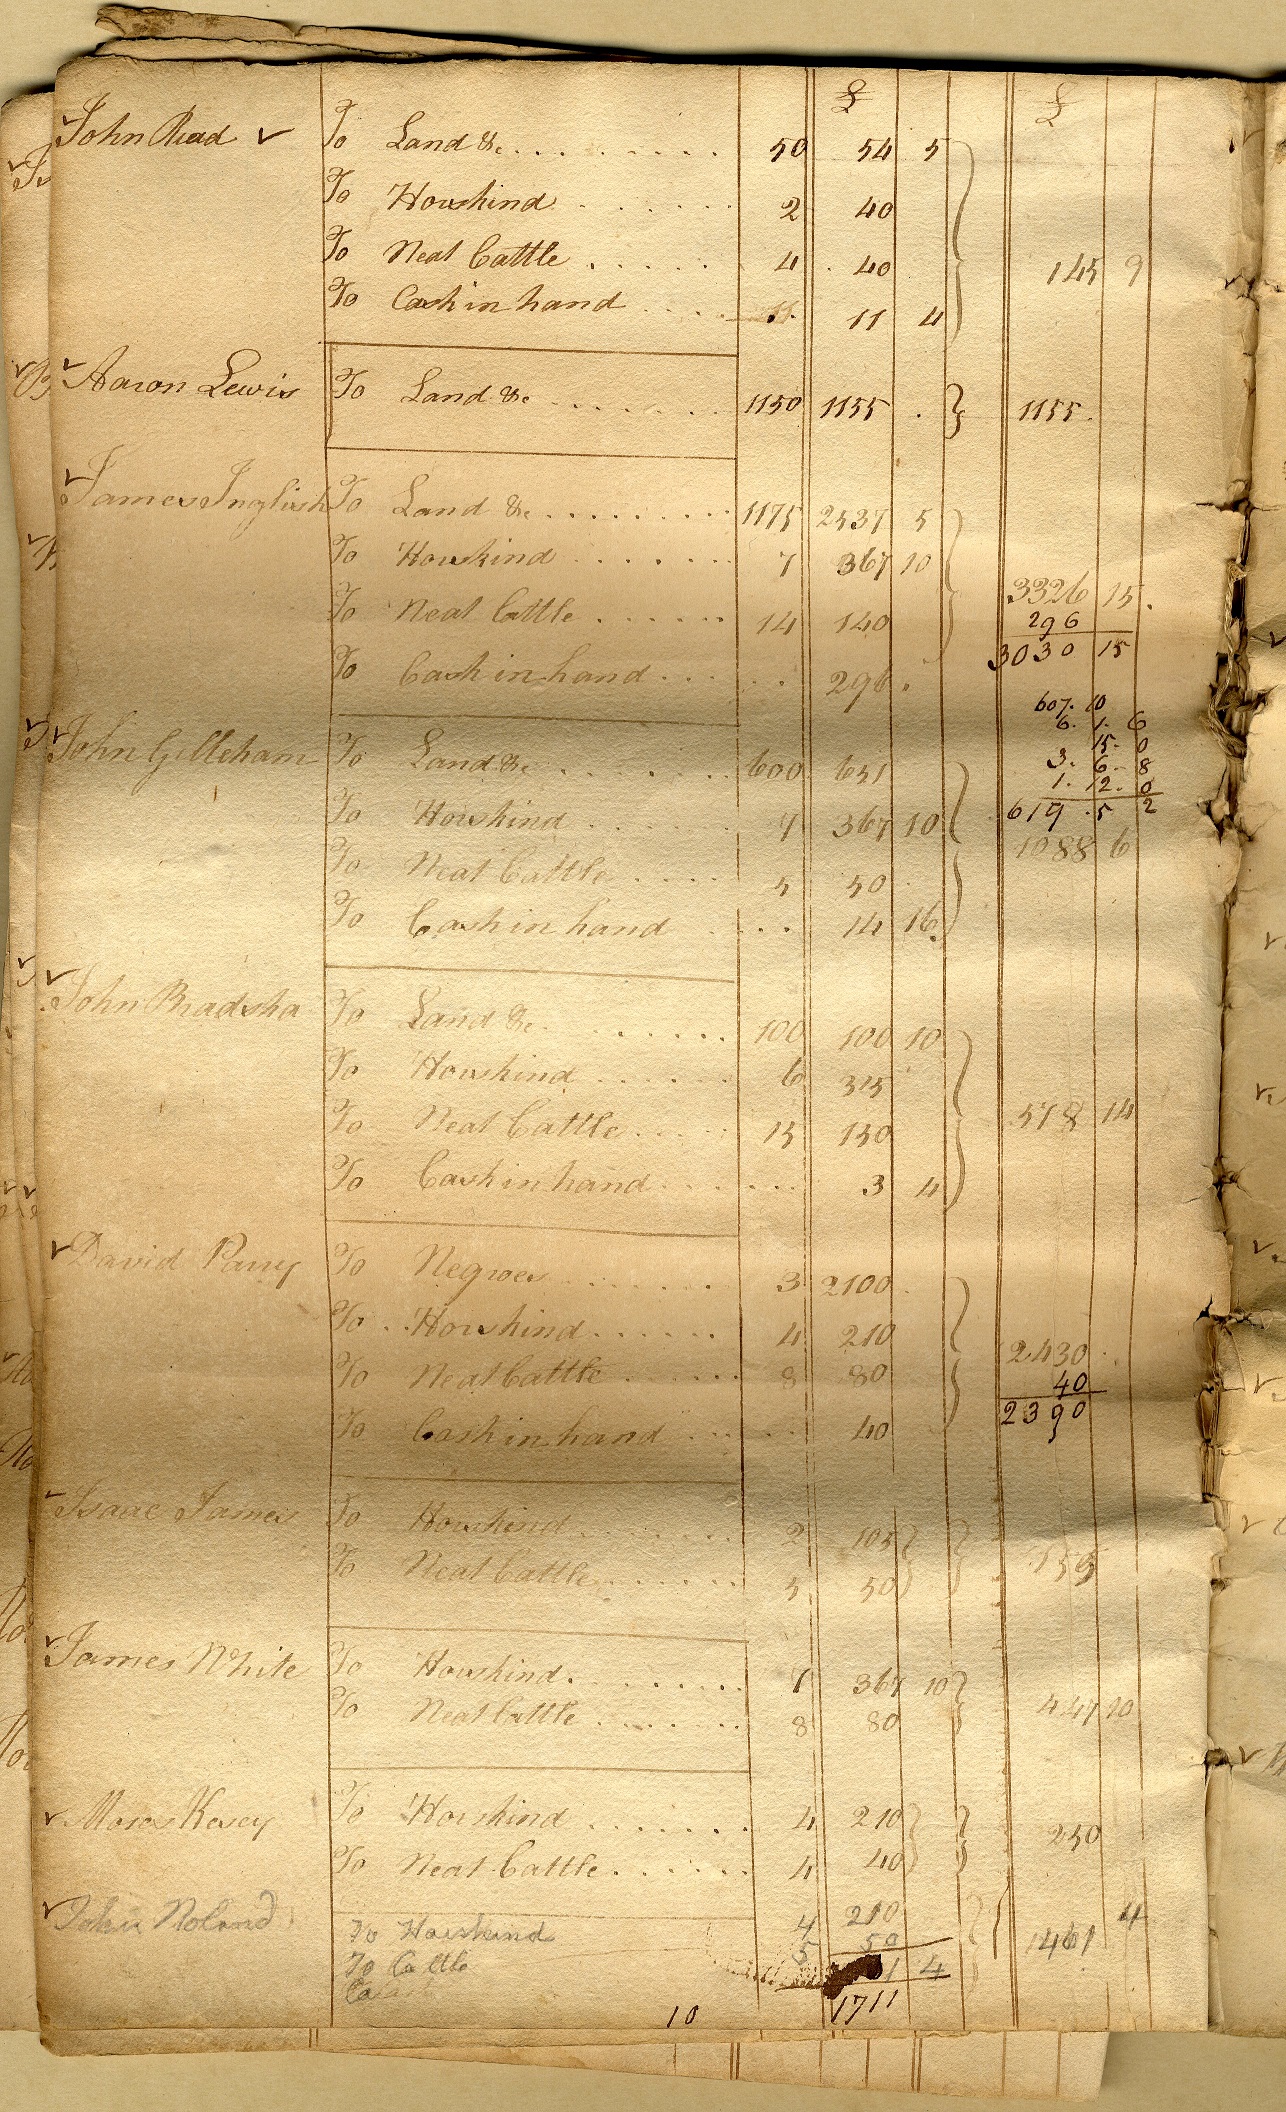 £ £
John Read To Land &c. 50 54 5
To Horskind 2 40
To Neat Cattle 4 40 145 9
To Cash in hand 11 4
Aaron Lewis To Land &c 1150 1155 1155
James Inglish To Land &c 1175 2537 5
To Horskind 7 367 10 3326 15
To Neat Cattle 14 140 296
3030 15
To Cash in hand 296
607. 10
6. 1. 6
John Gilleham To Land &c. 600 651 15. 0
3. 6. 8
1. 12. 0
To Horskind 7 367 10 619 . 5 2
1088 6
To Neat Cattle 5 50
To Cash in hand 14 16
John Bradsha To Land &c 100 100 10
To Horskind 6 315
To Neat Cattle 15 150 578 14
To Cash in hand 3 4
David Parry To Negroes 3 2100
To Horskind 4 210 2430
To Neat Cattle 8 80 40
2390
To Cash in hand 40
Isaac James To Horskind 2 105
To Neat Cattle 5 50 155
James White To Horskind 7 367 10
To Neat Cattle 8 80 447 10
Moses Kesey To Horskind 4 210
To Neat Cattle 4 40 250
John Noland To Horskind 4 210 4
To Cattle 5 50 1461
1 4
1711
10